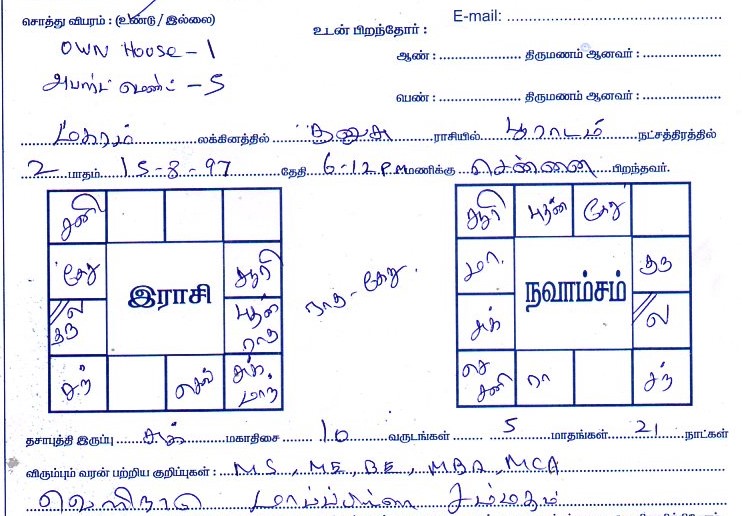 சொத்து விபரம் : (உண்டு / இல்லை)
E-mail:
OWN HOUSE - 1
உடன் பிறந்தோர் :
அபார்ட்மெண்ட் - 5
ஆண் : திருமணம் ஆனவர் :
பெண் : திருமணம் ஆனவர் :
மகரம் லக்கினத்தில் தனுசு ராசியில் பூராடம் நட்சத்திரத்தில்
2 பாதம் 15-8-97 தேதி 6-12 P.M மணிக்கு சென்னை பிறந்தவர்.
சனி
கேது சூரி
ல குரு புதன் ராகு
இராசி
சந் செவ் சுக் மாந்
ராகு - கேது
சூரி புதன் கேது
மா குரு
நவாம்சம்
சுக் ல
செ சனி ரா சந்
தசாபுத்தி இருப்பு சுக் மகாதிசை 10 வருடங்கள் 5 மாதங்கள் 21 நாட்கள்
விரும்பும் வரன் பற்றிய குறிப்புகள் : MS, ME, BE, MBA, MCA
வெளிநாடு மாப்பிள்ளை சம்மதம்